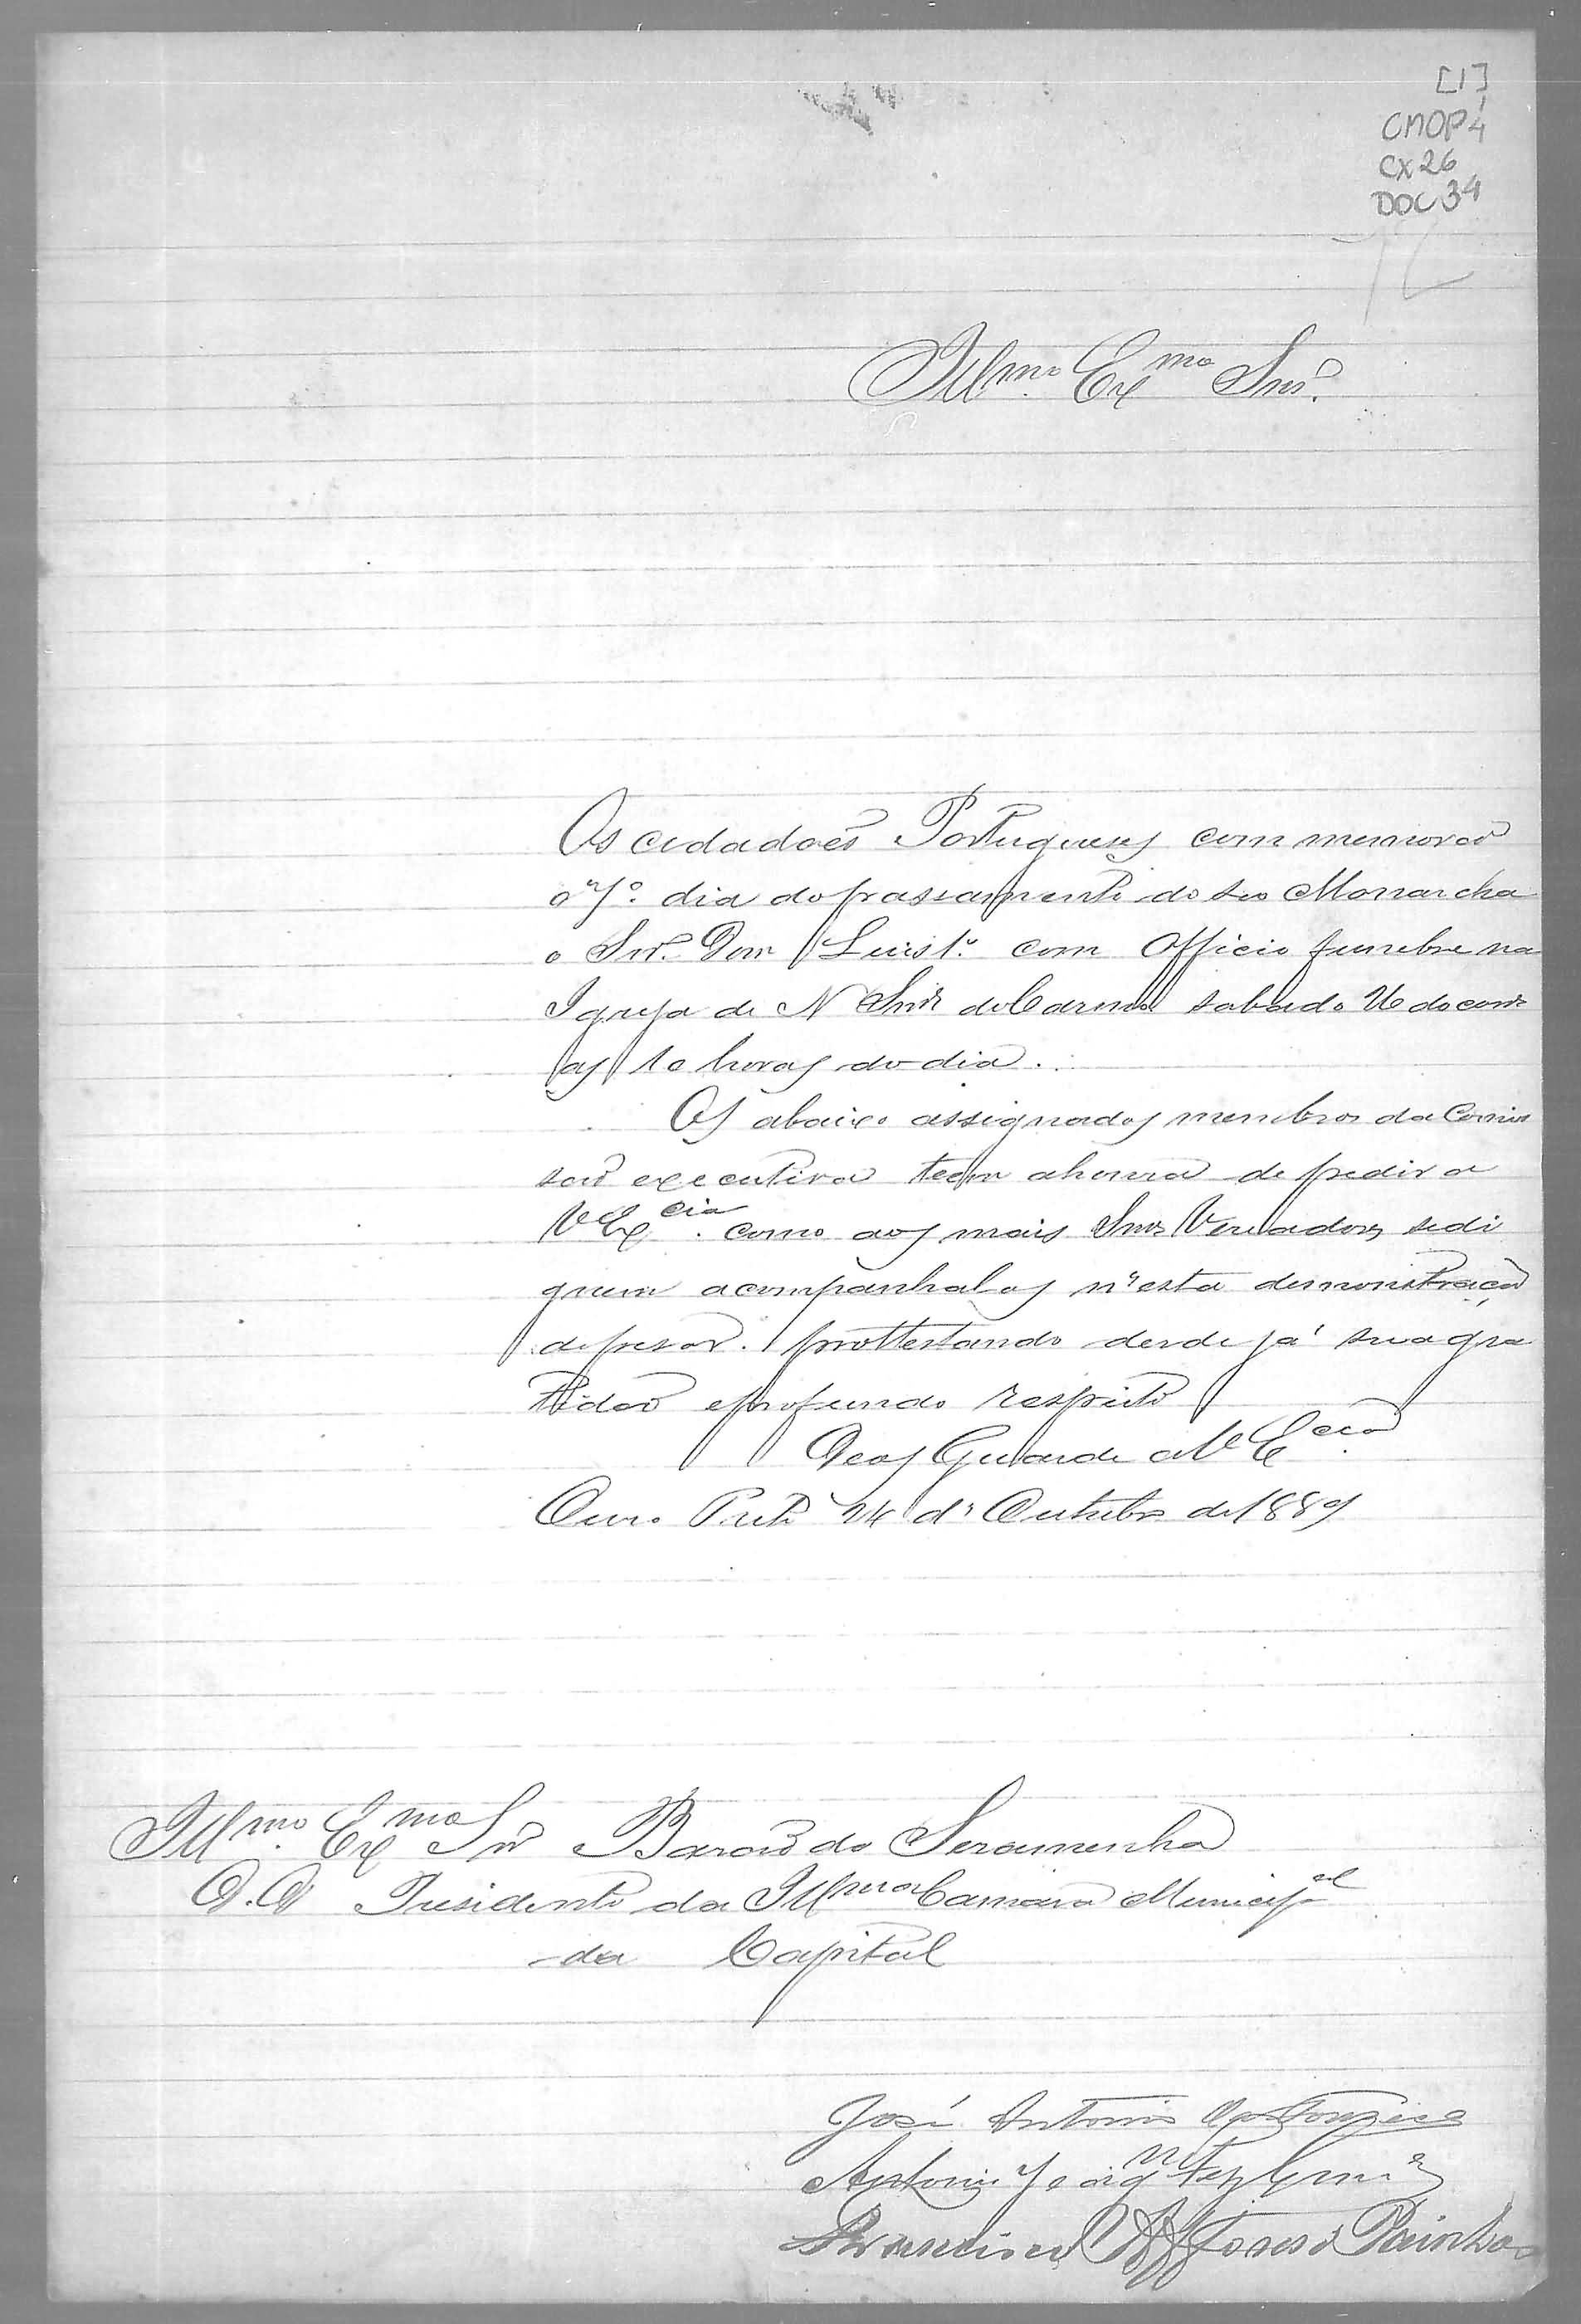 [1]
CMOP 4
CX 26
DOC 34
Illmo. Exmo Snr.
Os cidadaẽs Portugueses commemoraõ
o 7º. dia do passamento do seo Monarcha
o Snr. Dom Luis 1º. com Officio funebre na
Igreja de N Snrª do Carmo sabado 26 do corre
as 10 horas do dia.
Os abaixo assignados membros da Comis
saõ executiva teem a honra de pedir a
V Excia. como aos mais Snrs Vereadores se di
gnem acompanhalos n'esta demonstraçaõ
de pesar. prottestando desde já sua gra
tidaõ e profundo respeito
Deos Guarde a V Ecia.
Ouro Preto 24 de Outubro de 1889
Illmo. Exmo Snr Baraõ do Seramenha
D. D Presidente da Illma Camara Municipal
da Capital
José Antonio
Antonio
Francisco Affonso Painhas